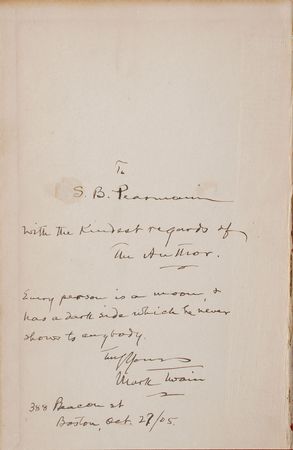 To
S. B. Pearmain
with the kindest regards of
The Author.
Every person is a moon, &
has a dark side which he never
shows to anybody.
Truly Yours
Mark Twain
388 Beacon st
Boston, Oct. 29/05.